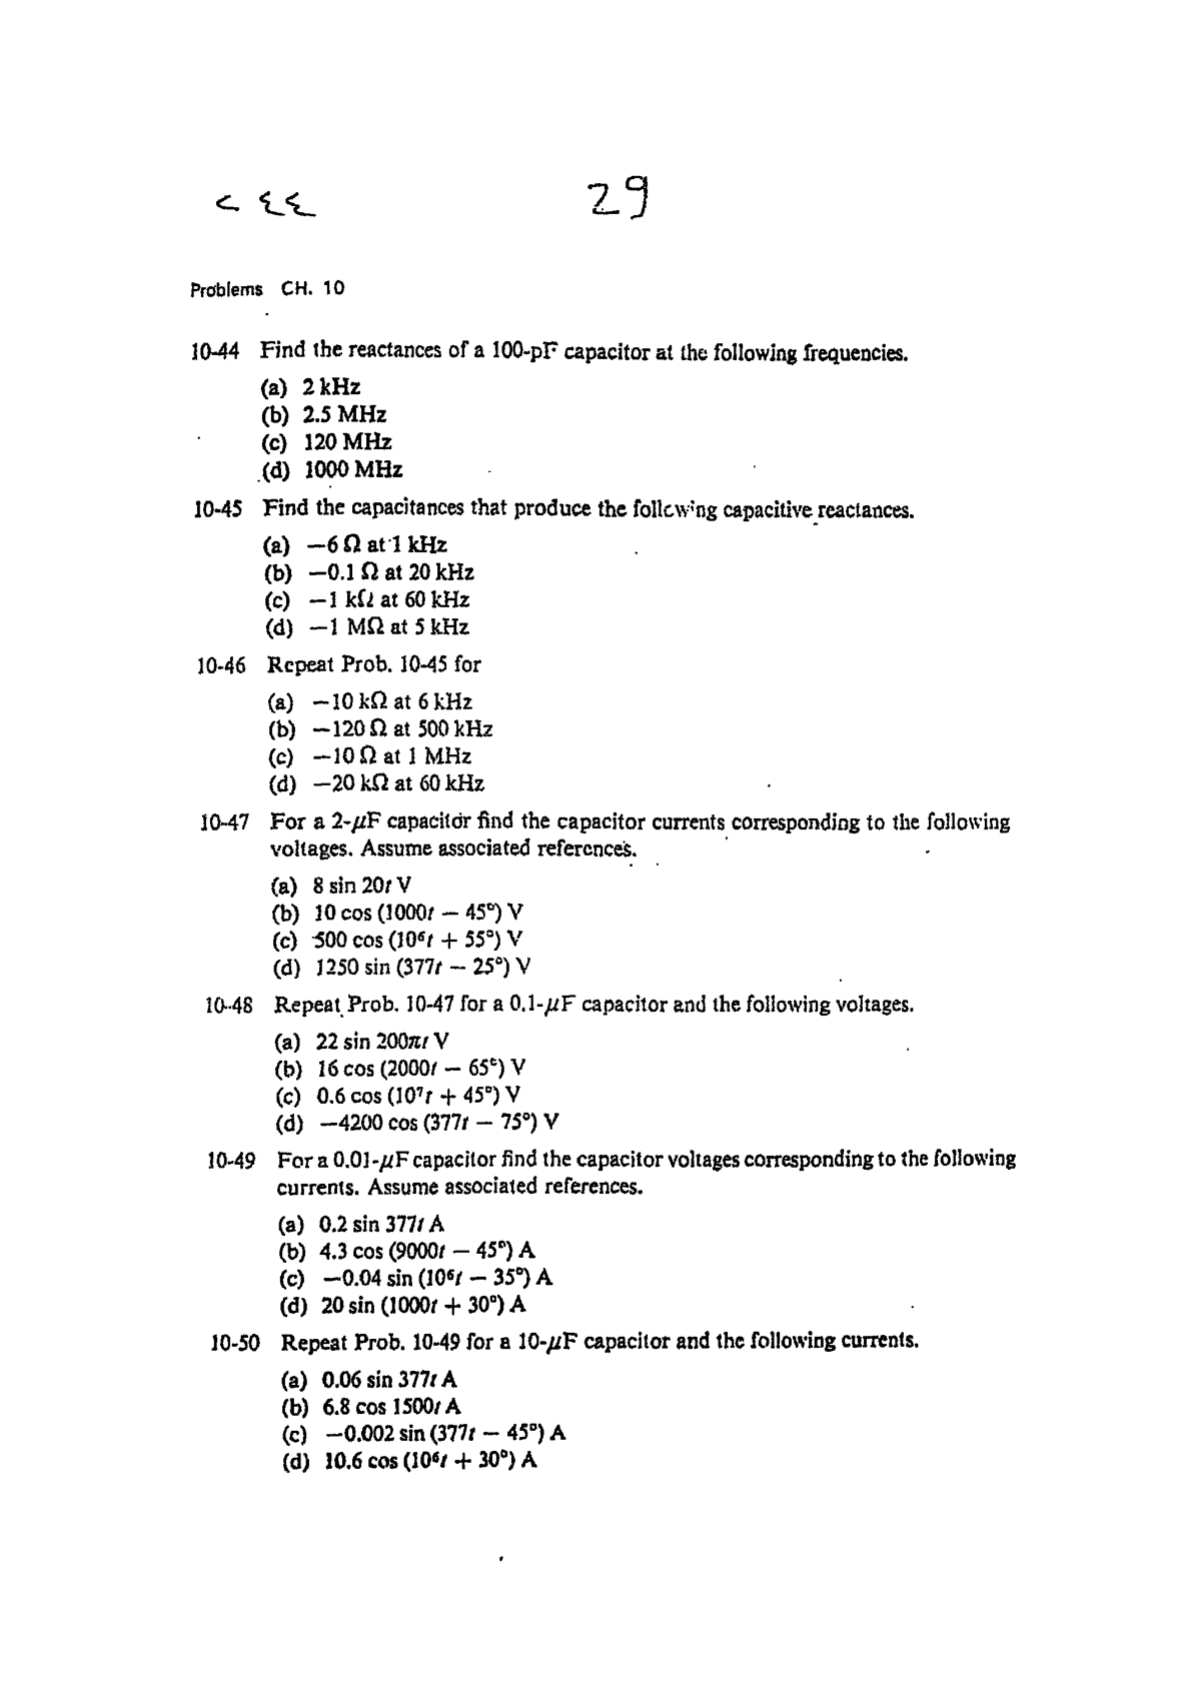 29
Problems CH. 10
10-44 Find the reactances of a 100-pF capacitor at the following frequencies.
(a) 2 kHz
(b) 2.5 MHz
(c) 120 MHz
(d) 1000 MHz
10-45 Find the capacitances that produce the following capacitive reactances.
(a) −6 Ω at 1 kHz
(b) −0.1 Ω at 20 kHz
(c) −1 kΩ at 60 kHz
(d) −1 MΩ at 5 kHz
10-46 Repeat Prob. 10-45 for
(a) −10 kΩ at 6 kHz
(b) −120 Ω at 500 kHz
(c) −10 Ω at 1 MHz
(d) −20 kΩ at 60 kHz
10-47 For a 2-μF capacitor find the capacitor currents corresponding to the following
voltages. Assume associated references.
(a) 8 sin 20t V
(b) 10 cos (1000t − 45°) V
(c) 500 cos (10⁶t + 55°) V
(d) 1250 sin (377t − 25°) V
10-48 Repeat Prob. 10-47 for a 0.1-μF capacitor and the following voltages.
(a) 22 sin 200πt V
(b) 16 cos (2000t − 65°) V
(c) 0.6 cos (10⁷t + 45°) V
(d) −4200 cos (377t − 75°) V
10-49 For a 0.01-μF capacitor find the capacitor voltages corresponding to the following
currents. Assume associated references.
(a) 0.2 sin 377t A
(b) 4.3 cos (9000t − 45°) A
(c) −0.04 sin (10⁶t − 35°) A
(d) 20 sin (1000t + 30°) A
10-50 Repeat Prob. 10-49 for a 10-μF capacitor and the following currents.
(a) 0.06 sin 377t A
(b) 6.8 cos 1500t A
(c) −0.002 sin (377t − 45°) A
(d) 10.6 cos (10⁶t + 30°) A